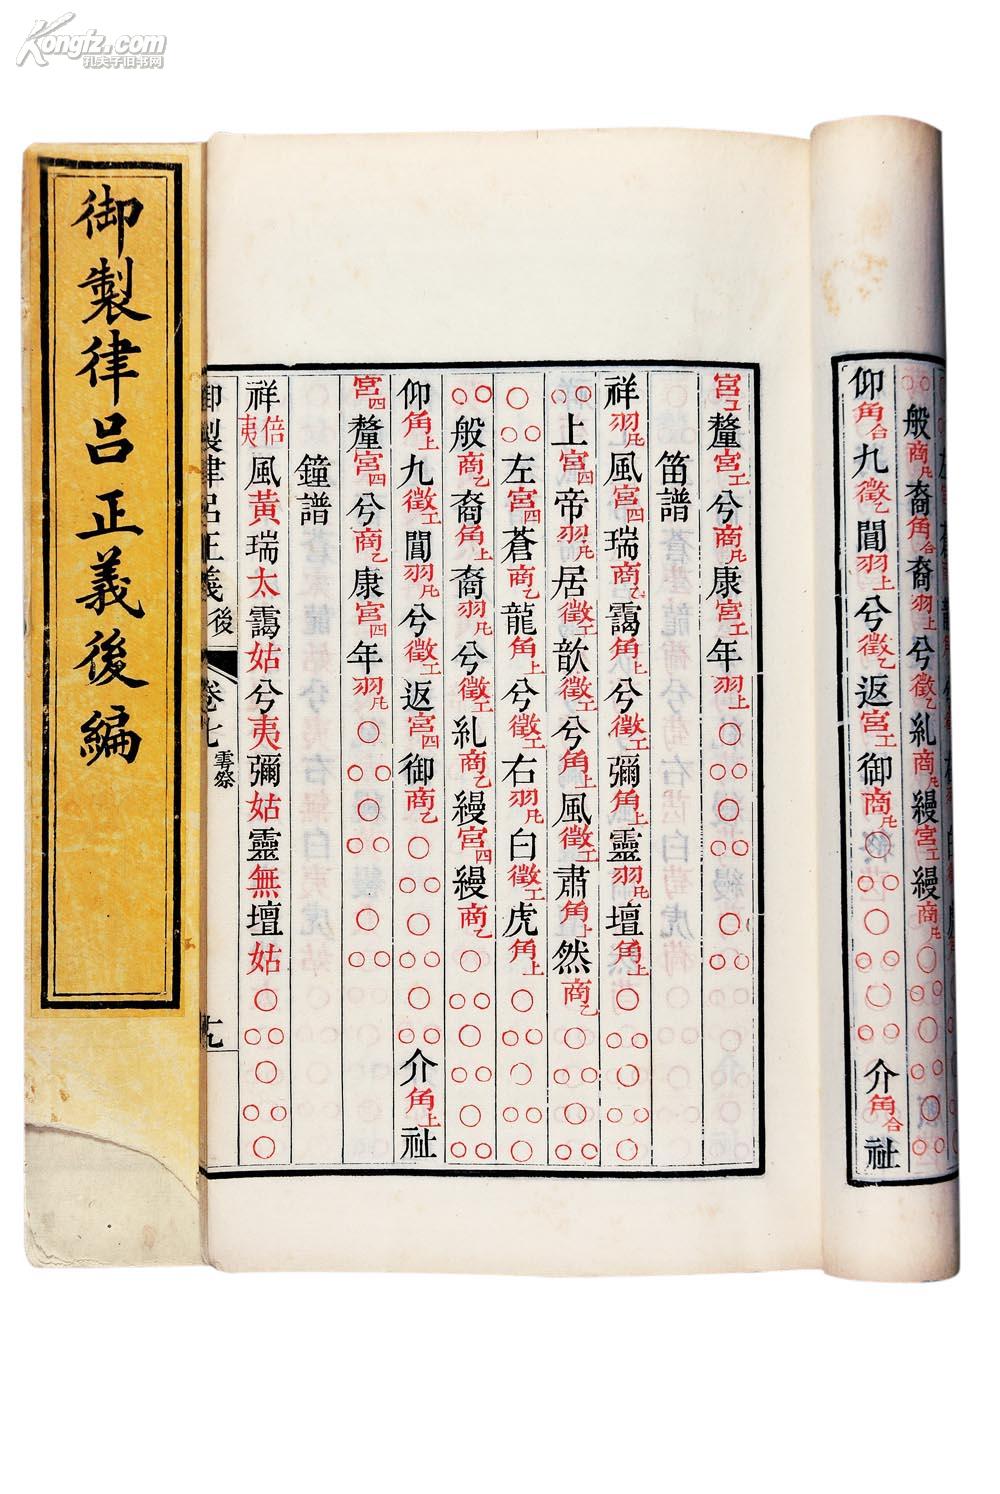 Kongfz.com
孔夫子旧书网
御製律呂正義後編
般商凡裔角合裔羽上兮徵乙糺商凡縵宮工縵商凡
仰角合九徵乙閶羽上兮徵乙返宮工御商凡 介角合祉
宮工釐宮工兮商凡康宮工年羽上
笛譜
祥羽凡風宮四瑞商乙靄角上兮徵工彌角上靈羽凡壇角上
上宮四帝羽凡居徵工歆徵工兮角上風徵工肅角上然商乙
左宮四蒼商乙龍角上兮徵工右羽凡白徵工虎角上
般商乙裔角上裔羽凡兮徵工糺商乙縵宮四縵商乙
仰角上九徵工閶羽凡兮徵工返宮四御商乙 介角上祉
宮四釐宮四兮商乙康宮四年羽凡
鐘譜
祥倍夷風黃瑞太靄姑兮夷彌姑靈無壇姑
御製律呂正義後 卷七 雩祭